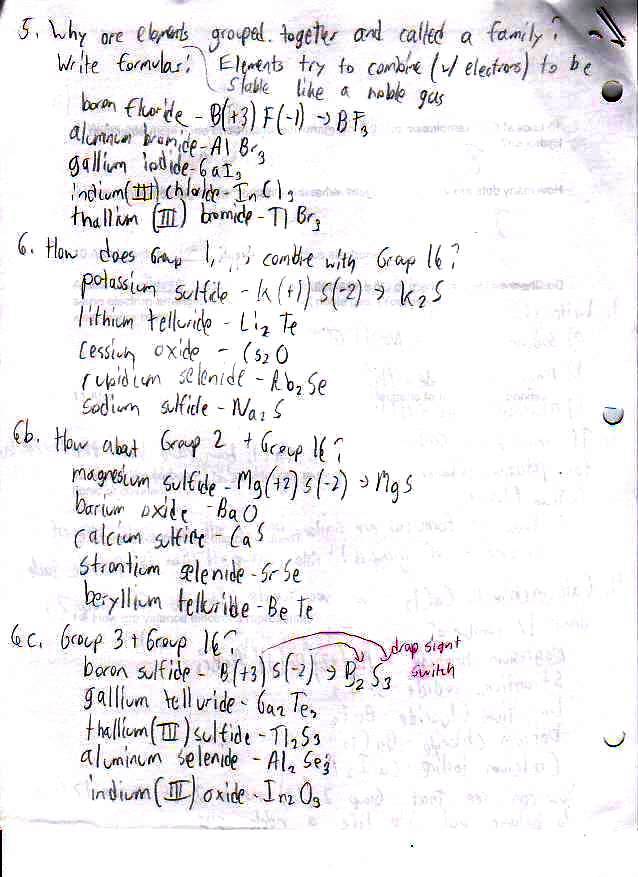 5. Why are elements grouped together and called a family?
Write formulas: Elements try to combine (w/ electrons) to be
stable like a noble gas
boron fluoride - B(+3) F(-1) → BF3
aluminum bromide - AlBr3
gallium iodide - GaI3
indium (III) chloride - InCl3
thallium (III) bromide - TlBr3
6. How does Group 1 combie with Group 16?
potassium sulfide - K(+1) S(-2) → K2S
lithium telluride - Li2Te
cessium oxide - Cs2O
rubidium selenide - Rb2Se
sodium sulfide - Na2S
6b. How about Group 2 + Group 16?
magnesium sulfide - Mg(+2) S(-2) → MgS
barium oxide - BaO
calcium sulfide - CaS
strontium selenide - SrSe
beryllium telluride - BeTe
6c. Group 3 + Group 16?
drop sign +
switch
boron sulfide - B(+3) S(-2) → B2S3
gallium telluride - Ga2Te3
thallium (III) sulfide - Tl2S3
aluminum selenide - Al2Se3
indium (III) oxide - In2O3